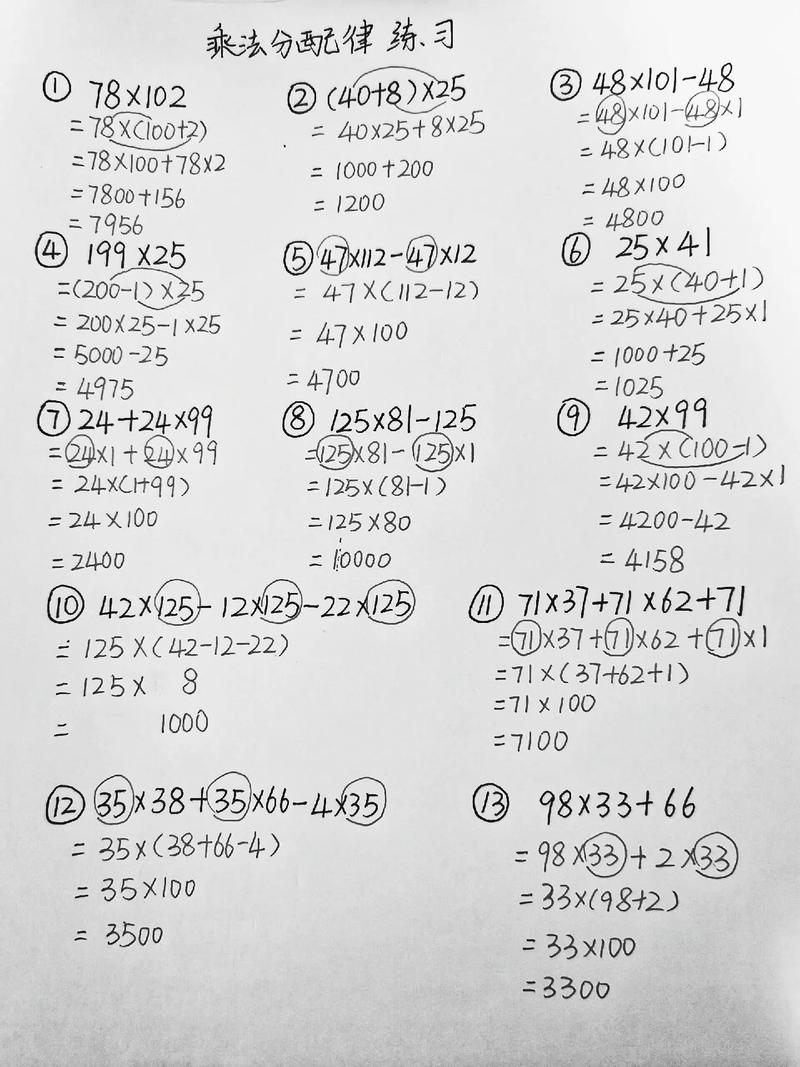 乘法分配律 练习
① 78×102
=78×(100+2)
=78×100+78×2
=7800+156
=7956
② (40+8)×25
= 40×25+8×25
= 1000+200
= 1200
③ 48×101-48
=48×101-48×1
=48×(101-1)
=48×100
=4800
④ 199×25
=(200-1)×25
=200×25-1×25
=5000-25
=4975
⑤ 47×112-47×12
= 47×(112-12)
= 47×100
= 4700
⑥ 25×41
=25×(40+1)
=25×40+25×1
=1000+25
=1025
⑦ 24+24×99
=24×1+24×99
=24×(1+99)
=24×100
=2400
⑧ 125×81-125
=125×81-125×1
=125×(81-1)
=125×80
=10000
⑨ 42×99
=42×(100-1)
=42×100-42×1
=4200-42
=4158
⑩ 42×125-12×125-22×125
= 125×(42-12-22)
= 125× 8
= 1000
⑪ 71×37+71×62+71
=71×37+71×62+71×1
=71×(37+62+1)
=71×100
=7100
⑫ 35×38+35×66-4×35
= 35×(38+66-4)
= 35×100
= 3500
⑬ 98×33+66
=98×33+2×33
=33×(98+2)
=33×100
=3300